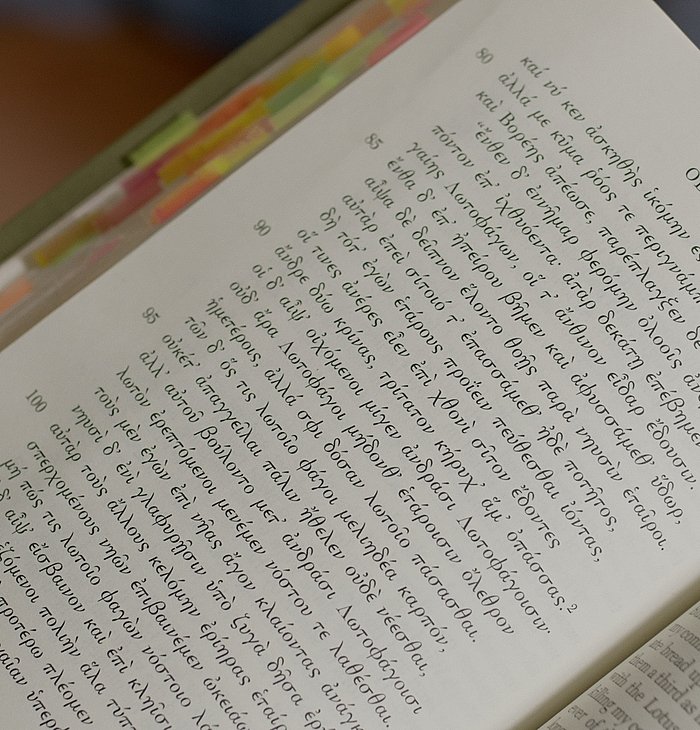 καί νύ κεν ἀσκηθὴς ἱκόμην
80 ἀλλά με κῦμα ῥόος τε
καὶ Βορέης ἀπέωσε, παρέπλαγξεν δὲ
“ἔνθεν δ᾽ ἐννῆμαρ φερόμην ὀλοοῖς
πόντον ἐπ᾽ ἰχθυόεντα· ἀτὰρ δεκάτῃ
γαίης Λωτοφάγων, οἵ τ᾽ ἄνθινον εἶδαρ ἔδουσιν.
85 ἔνθα δ᾽ ἐπ᾽ ἠπείρου βῆμεν καὶ ἀφυσσάμεθ᾽ ὕδωρ,
αἶψα δὲ δεῖπνον ἕλοντο θοῇς παρὰ νηυσὶν ἑταῖροι.
αὐτὰρ ἐπεὶ σίτοιό τ᾽ ἐπασσάμεθ᾽ ἠδὲ ποτῆτος,
δὴ τότ᾽ ἐγὼν ἑτάρους προΐειν πεύθεσθαι ἰόντας,
οἵ τινες ἀνέρες εἶεν ἐπὶ χθονὶ σῖτον ἔδοντες
90 ἄνδρε δύω κρίνας, τρίτατον κήρυχ᾽ ἅμ᾽ ὀπάσσας.²
οἱ δ᾽ αἶψ᾽ οἰχόμενοι μίγεν ἀνδράσι Λωτοφάγοισιν·
οὐδ᾽ ἄρα Λωτοφάγοι μήδονθ᾽ ἑτάροισιν ὄλεθρον
ἡμετέροις, ἀλλά σφι δόσαν λωτοῖο πάσασθαι.
τῶν δ᾽ ὅς τις λωτοῖο φάγοι μελιηδέα καρπόν,
95 οὐκέτ᾽ ἀπαγγεῖλαι πάλιν ἤθελεν οὐδὲ νέεσθαι,
ἀλλ᾽ αὐτοῦ βούλοντο μετ᾽ ἀνδράσι Λωτοφάγοισι
λωτὸν ἐρεπτόμενοι μενέμεν νόστου τε λαθέσθαι.
τοὺς μὲν ἐγὼν ἐπὶ νῆας ἄγον κλαίοντας
νηυσὶ δ᾽ ἐνὶ γλαφυρῇσιν ὑπὸ ζυγὰ δῆσα
100 αὐτὰρ τοὺς ἄλλους κελόμην ἐρίηρας
σπερχομένους νηῶν ἐπιβαινέμεν
μή πώς τις λωτοῖο φαγὼν νόστοιο
δ᾽ αἶψ᾽ εἴσβαινον καὶ ἐπὶ κληῖσι
πολιὴν ἅλα
προτέρω πλέομεν